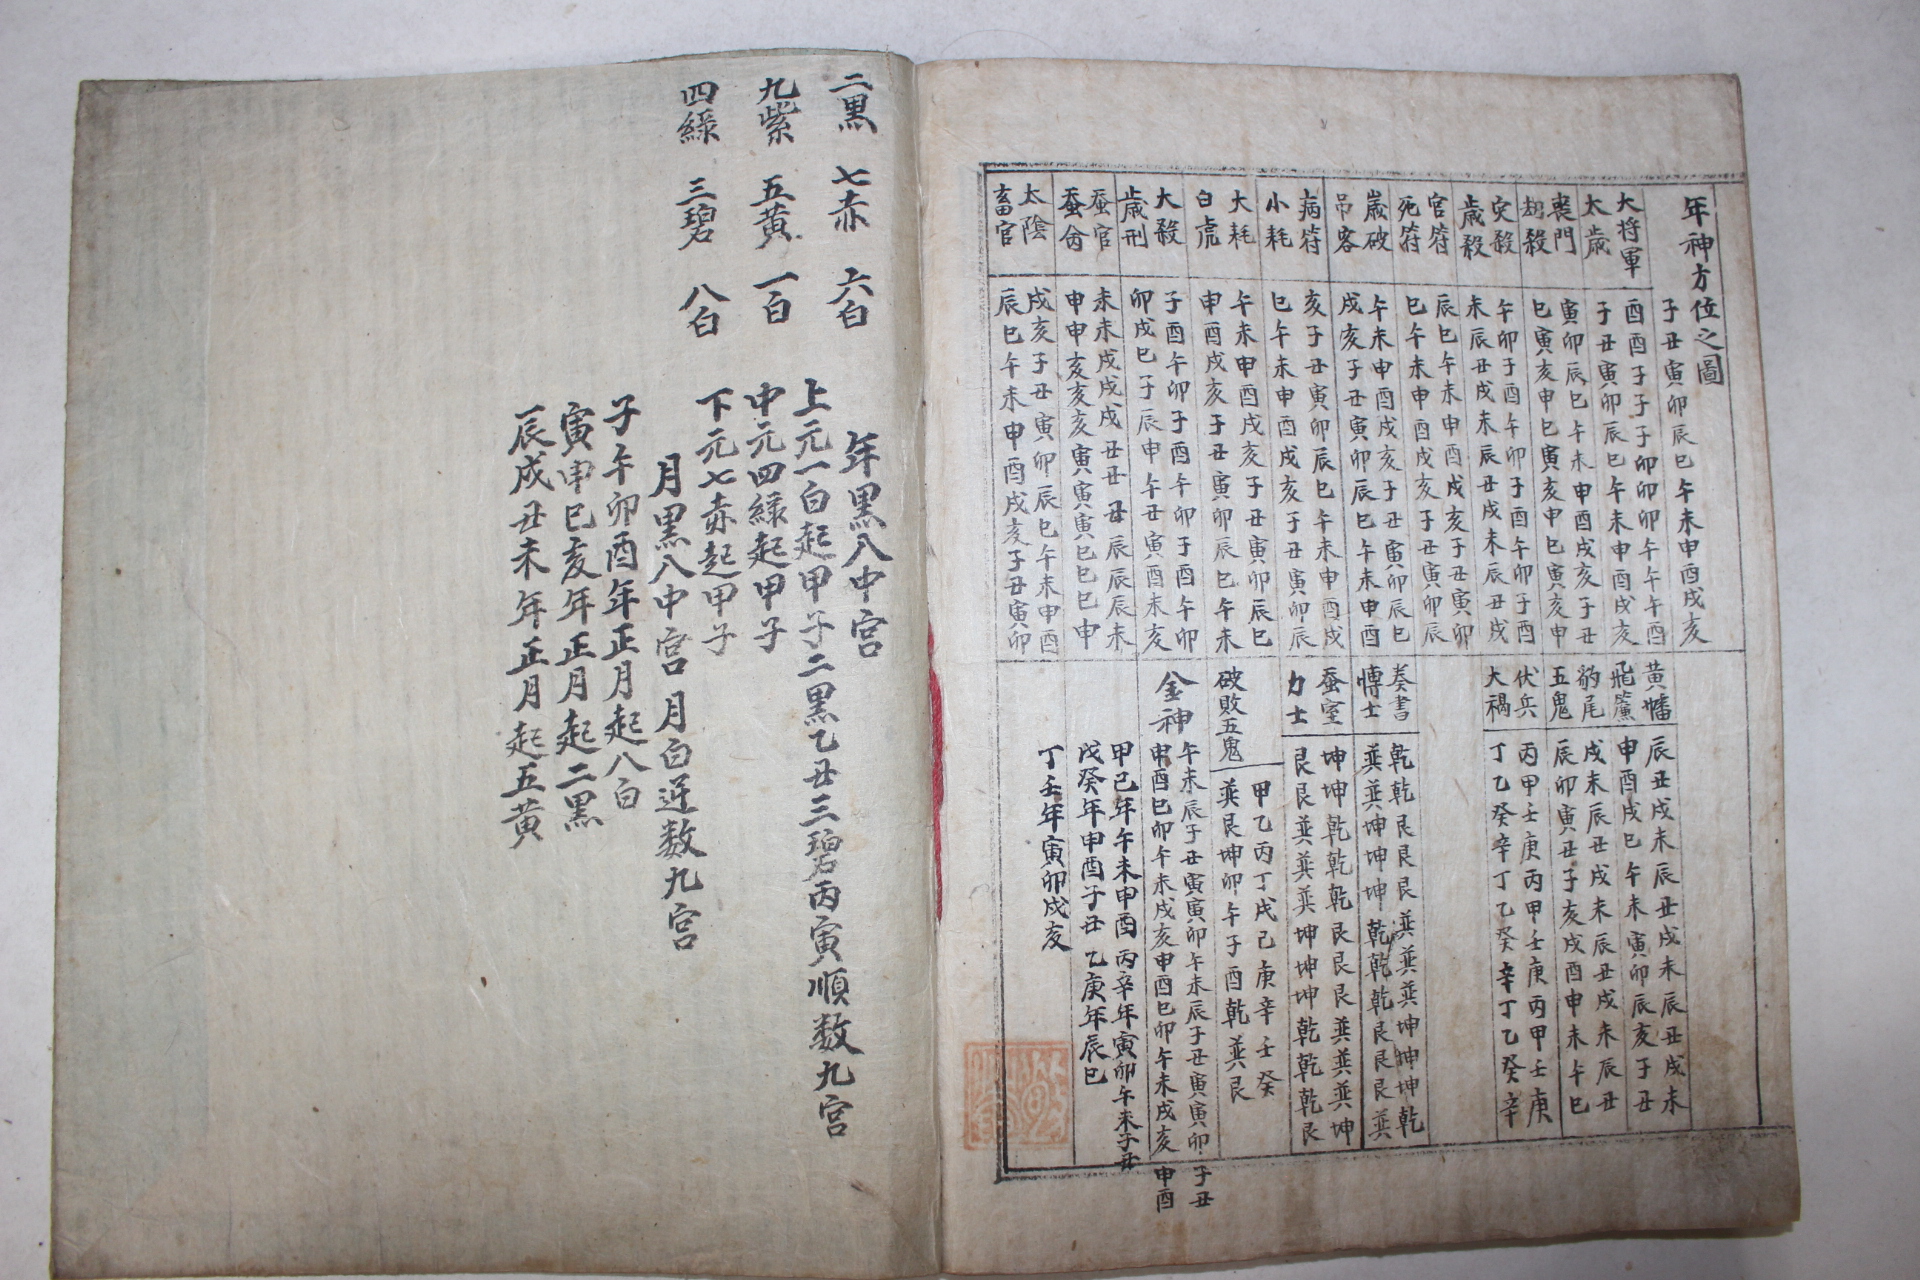 年神方位之圖
子丑寅卯辰巳午未申酉戌亥
大將軍 酉酉子子子卯卯卯午午午酉
太歲 子丑寅卯辰巳午未申酉戌亥
喪門 寅卯辰巳午未申酉戌亥子丑
劫殺 巳寅亥申巳寅亥申巳寅亥申
灾殺 午卯子酉午卯子酉午卯子酉
歲殺 未辰丑戌未辰丑戌未辰丑戌
官符 辰巳午未申酉戌亥子丑寅卯
死符 巳午未申酉戌亥子丑寅卯辰
歲破 午未申酉戌亥子丑寅卯辰巳
吊客 戌亥子丑寅卯辰巳午未申酉
病符 亥子丑寅卯辰巳午未申酉戌
小耗 巳午未申酉戌亥子丑寅卯辰
大耗 午未申酉戌亥子丑寅卯辰巳
白虎 申酉戌亥子丑寅卯辰巳午未
大殺 子酉午卯子酉午卯子酉午卯
歲刑 卯戌巳子辰申午丑寅酉未亥
蚕官 未未戌戌戌丑丑丑辰辰辰未
蚕命 申申亥亥亥寅寅寅巳巳巳申
太陰 戌亥子丑寅卯辰巳午未申酉
畜官 辰巳午未申酉戌亥子丑寅卯
黃幡 辰丑戌未辰丑戌未辰丑戌未
飛簾 申酉戌巳午未寅卯辰亥子丑
豹尾 戌未辰丑戌未辰丑戌未辰丑
五鬼 辰卯寅丑子亥戌酉申未午巳
伏兵 丙甲壬庚丙甲壬庚丙甲壬庚
大禍 丁乙癸辛丁乙癸辛丁乙癸辛
奏書 乾乾艮艮艮巽巽巽坤坤坤乾
博士 巽巽坤坤坤乾乾乾艮艮艮巽
蚕室 坤坤乾乾乾艮艮艮巽巽巽坤
力士 艮艮巽巽巽坤坤坤乾乾乾艮
破敗五鬼 甲乙丙丁戊己庚辛壬癸
巽艮坤卯午子酉乾巽艮
金神 午未辰子丑寅寅卯午未辰子丑寅寅卯子丑
申酉巳卯午未戌亥申酉巳卯午未戌亥申酉
甲己年午未申酉 丙辛年寅卯午未子丑
戊癸年申酉子丑 乙庚年辰巳
丁壬年寅卯戌亥
二黒 七赤 六白
九紫 五黄 一白
四綠 三碧 八白
年黒入中宮
上元一白起甲子二黒乙丑三碧丙寅順数九宮
中元四綠起甲子
下元七赤起甲子
月黒入中宮月白逆数九宮
子午卯酉年正月起八白
寅申巳亥年正月起二黒
辰戌丑未年正月起五黄